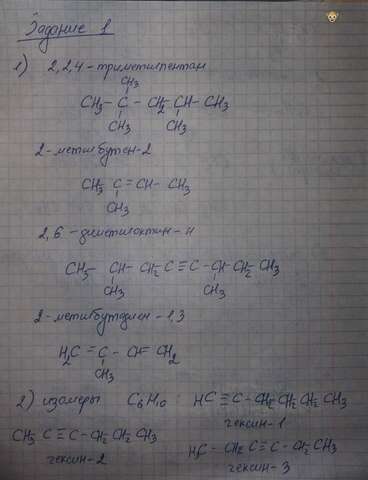 Задание 1
1) 2,2,4-триметилпентан
CH3
CH3- C - CH2 CH - CH3
CH3 CH3
2-метилбутен-2
CH3 C = CH - CH3
CH3
2,6-диметилоктин-4
CH3 - CH - CH2 C ≡ C - CH - CH2 CH3
CH3 CH3
2-метилбутадиен-1,3
H2C = C - CH = CH2
CH3
2) изомеры C6H10: HC ≡ C - CH2 CH2 CH2 CH3
гексин-1
CH3 C ≡ C - CH2 CH2 CH3
гексин-2
H3C - CH2 C ≡ C - CH2 CH3
гексин-3